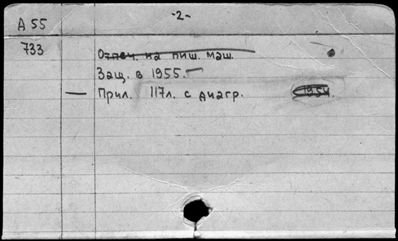 -2-
А 55
733 Отпеч. на пиш. маш.
Защ. в 1955.
— Прил. 117л. с диагр. 1954